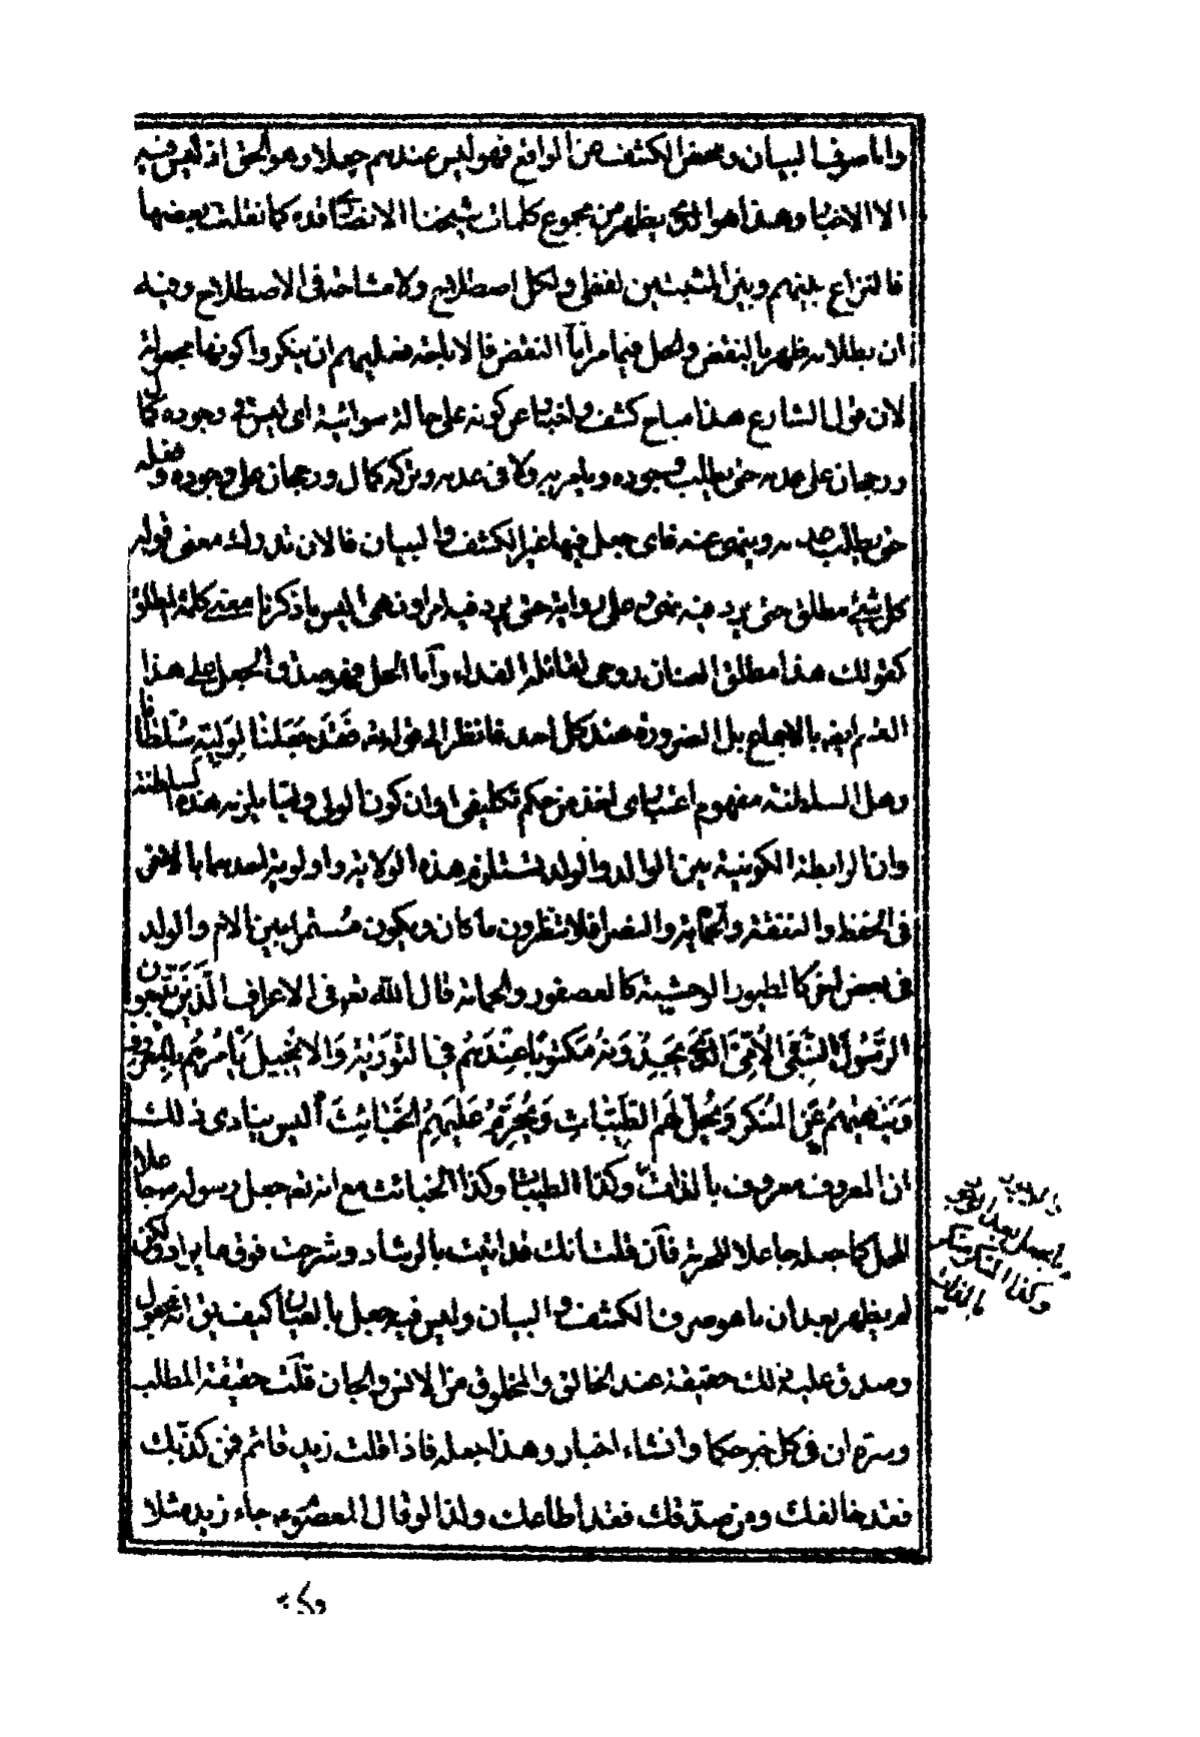 واما صرف البيان ومحض الكشف عن الواقع فهو ليس عندهم جعلا وهو الحق اذ ليس فيه
الا الاخبار وهذا هو الذى يظهر من مجموع كلمات شيخنا الانصارى قده كما نقلت بعضها
فالنزاع بينهم وبين المثبتين لفظى ولكل اصطلاح ولا مشاحة فى الاصطلاح وفيه
ان بطلانه ظهر بالنقض والحل فيما مر اما النقض فالاباحة فعليهم ان ينكروا كونها مجعولة
لان قول الشارع هذا مباح كشف واخبار عن كونه على حالة سوائية اى ليس فى وجوده كمال
ورجحان على عدمه حتى يطلب وجوده ويامر به ولا فى عدمه وتركه كمال ورجحان على وجوده وفعله
حتى يطلب عدمه وينهى عنه فاى جعل فيها غير الكشف والبيان فالان تدرك معنى قوله
كل شىء مطلق حتى يرد فيه نهى وعلى رواية حتى يرد فيه امر او نهى اليس ما ذكرنا معنى كلمة المطلق
كقولك هذا مطلق العنان روحى لقائله الفداء وأما الحل فهو صدق الجعل على هذا
القدر ايضا بالاجماع بل الضرورة عند كل احد فانظر الى قوله تعـ فَقَدْ جَعَلْنا لِوَلِيِّهِ سُلْطاناً
وهل السلطنة مفهوم اعتبارى اخذ من حكم تكليفى او ان كون الولى وليّا يلزمه هذه السلطنة
وان الرابطة الكونية بين الوالد والولد تستلزم هذه الولاية واولوية احدهما بالاخر
فى الحفظ والنفقة والحماية والنصر افلا تنظرون ما كان ويكون مستمرا بين الام والولد
فى بعض اخر كالطيور الوحشية كالعصفور والحمامة قال الله تعـ فى الاعراف الَّذينَ يَتَّبِعُونَ
الرَّسُولَ النَّبِىَّ الْأُمِّىَّ الَّذى يَجِدُونَهُ مَكْتُوباً عِنْدَهُمْ فِى التَّوْرٰيةِ وَالْاِنْجيلِ يَأْمُرُهُمْ بِالْمَعْرُوفِ
وَيَنْهٰيهُمْ عَنِ الْمُنْكَرِ وَيُحِلُّ لَهُمُ الطَّيِّباتِ وَيُحَرِّمُ عَلَيْهِمُ الْخَبائِثَ أليس ينادى ذلك
ان المعروف معروف بالذات وكذا الطيبات وكذا الخبائث مع انه تعـ جعل رسوله جاعلا
للحل كما جعله جاعلا للحرمة فآن قلت انك قد اتيت بالرشاد وشرحت فوق ما يراد ولكن
لم يظهر بعد ان ما هو صرف الكشف والبيان وليس فيه جعل بالعيان كيف يق انه مجعول
وصدق عليه ذلك حقيقة عند الخالق والمخلوق من الانس والجان قلت حقيقة المطلب
وسره ان فى كل خبر حكما وانشاء اخبار وهذا جعله فاذا قلت زيد قائم فمن كذبك
فقد خالفك ومن صدقك فقد أطاعك ولذا لو قال المعصوم ع جاء زيد مثلا
وكذا المنكر منكر
بالذات